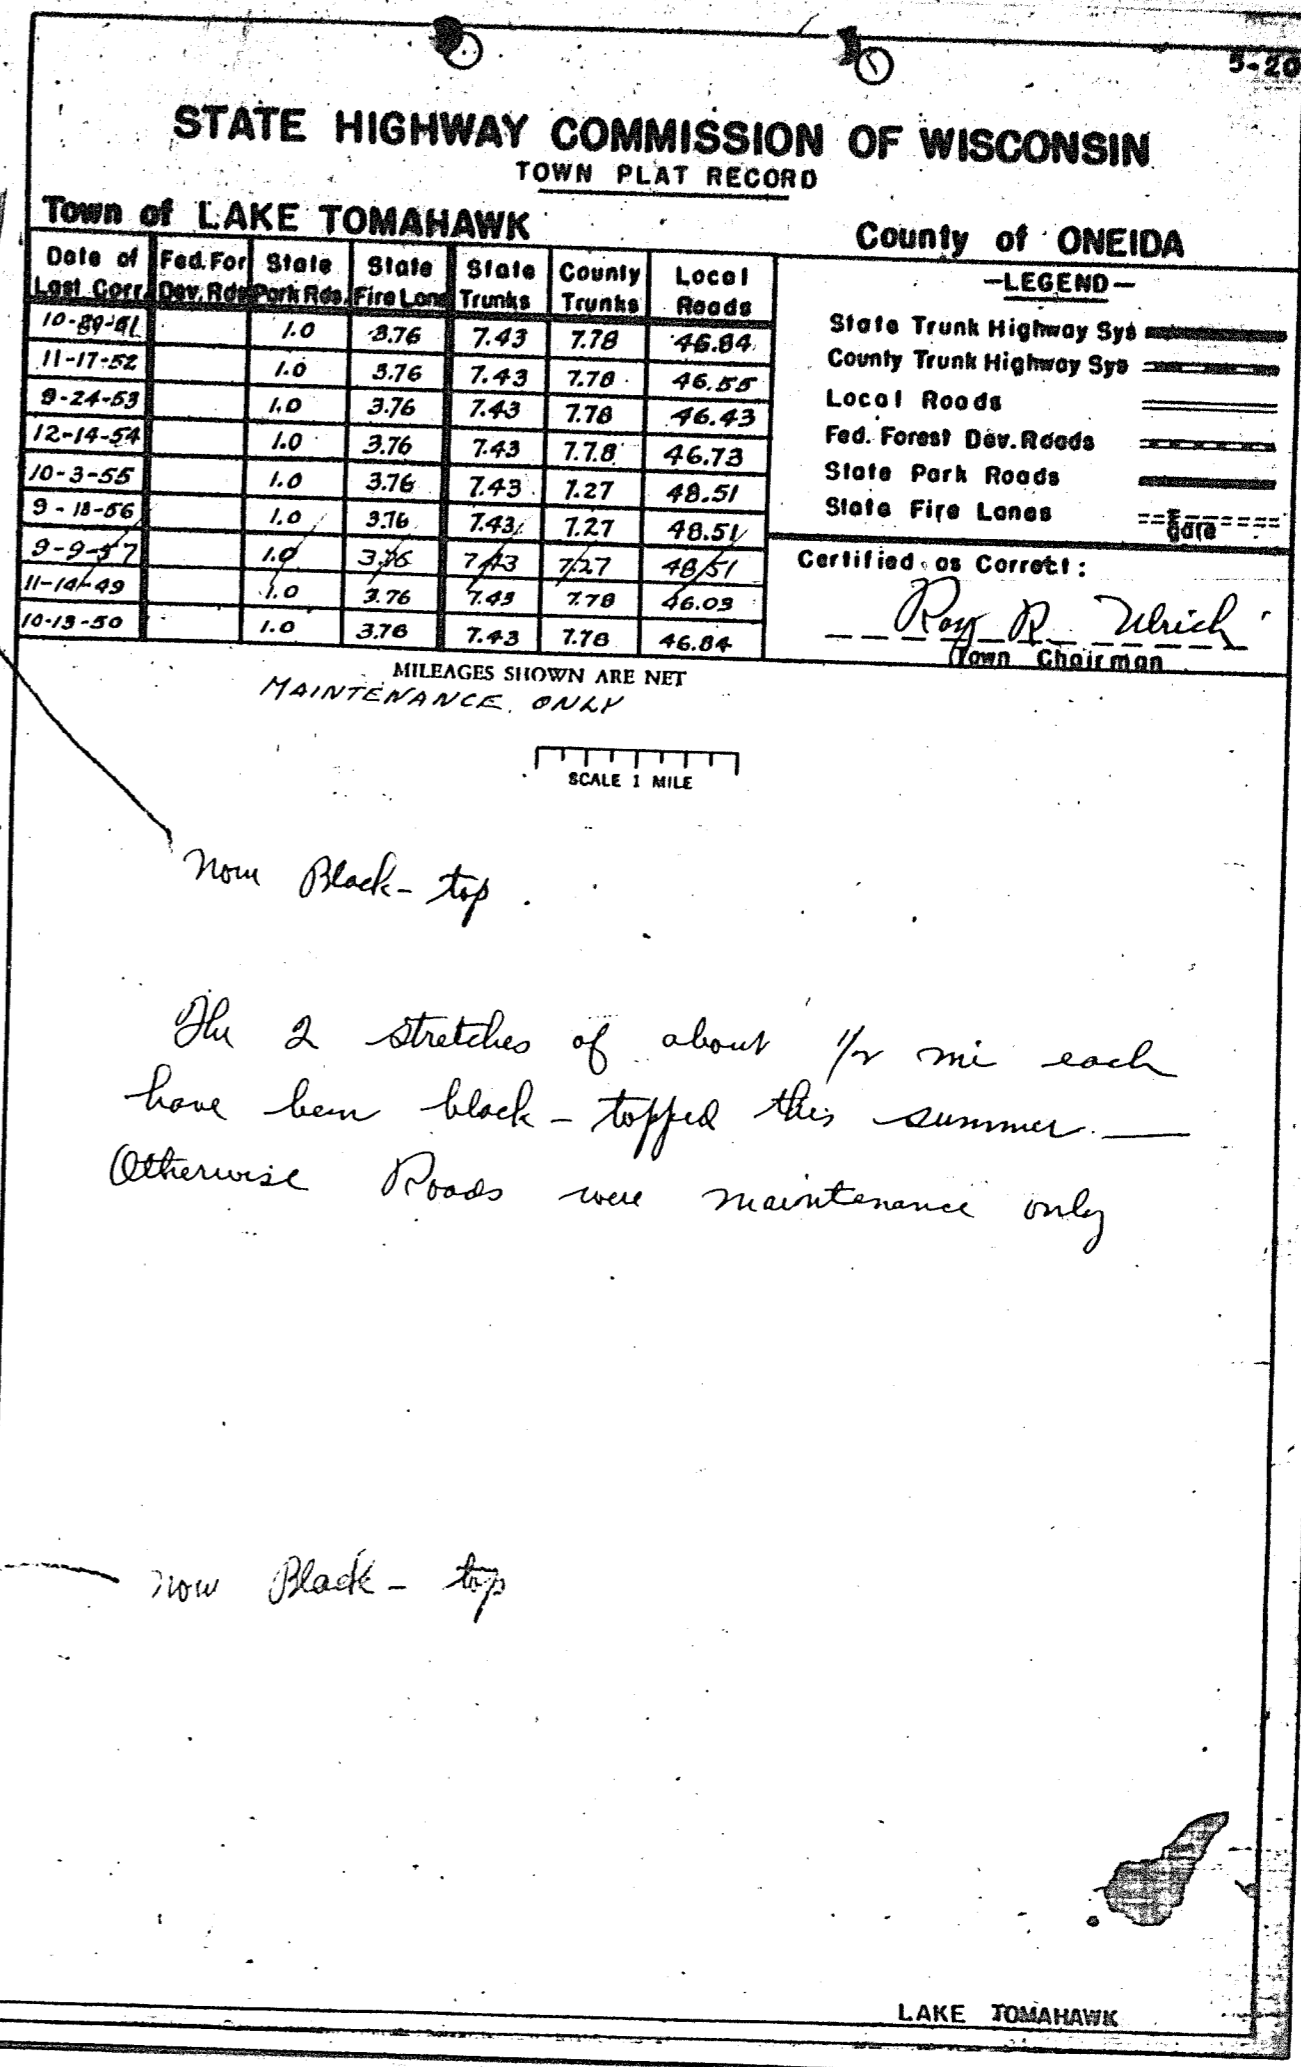 5-20
STATE HIGHWAY COMMISSION OF WISCONSIN
TOWN PLAT RECORD
Town of LAKE TOMAHAWK
County of ONEIDA
Date of Last Corr. Fed. For Dev. Rds State Park Rds. State Fire Lane State Trunks County Trunks Local Roads
1.0 3.76 7.43 7.78 46.84
11-17-52 1.0 3.76 7.43 7.78 46.55
9-24-53 1.0 3.76 7.43 7.78 46.43
12-14-54 1.0 3.76 7.43 7.78 46.73
10-3-55 1.0 3.76 7.43 7.27 48.51
9-18-56 1.0 3.76 7.43 7.27 48.51
9-9-57 1.0 3.76 7.43 7.27 48.51
11-14-49 1.0 3.76 7.43 7.78 46.03
10-13-50 1.0 3.76 7.43 7.78 46.84
—LEGEND—
State Trunk Highway Sys
County Trunk Highway Sys
Local Roads
Fed. Forest Dev. Roads
State Park Roads
State Fire Lanes
gate
Certified as Correct:
Roy R. Ulrich
Town Chairman
MILEAGES SHOWN ARE NET
MAINTENANCE ONLY
SCALE 1 MILE
Now Black-top.
The 2 stretches of about 1/2 mi each
have been black-topped this summer.—
Otherwise Roads were maintenance only
now Black-top
LAKE TOMAHAWK